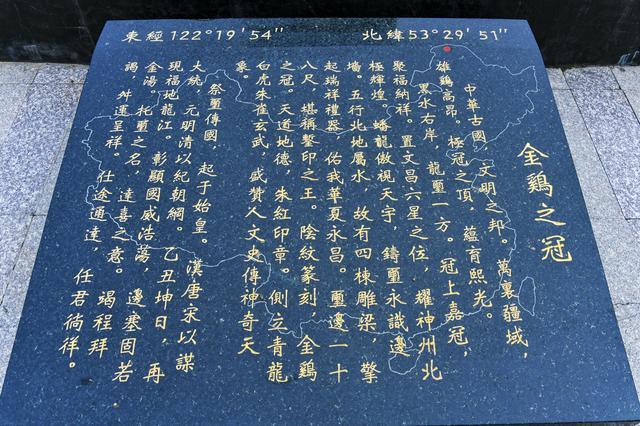 東經122°19′54″
北緯53°29′51″
金鷄之冠
中華古國,文明之邦。萬裏疆域,
雄鷄高昂。極冠之頂,蘊育熙光。
黑水右岸,龍璽一方。冠上嘉冠,
聚福納祥。置文昌六星之位,耀神州北
極輝煌。蟠龍傲視天宇,鑄璽永識邊
墻。五行北地屬水,故有四棟雕梁,擎
起瑞祥禮器,佑我華夏永昌。璽邊一十
八尺,堪稱鏨印之王。陰紋篆刻,金鷄
之冠。天道地德,朱紅印章。側立青龍
白虎朱雀玄武,感贊人文史傳神奇天
象。
祭璽傳國,起于始皇。漢唐宋以謀
大統,元明清以紀朝綱。乙丑坤日,再
現福地龍江。彰顯國威浩蕩,邊塞固若
金湯。托璽之名,達喜之意。竭程拜
謁,舛運呈祥。仕途通達,任君徜徉。